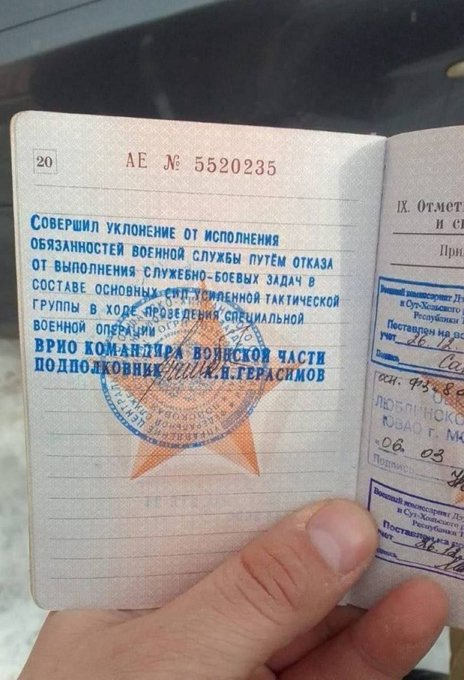 20
АЕ № 5520235
СОВЕРШИЛ УКЛОНЕНИЕ ОТ ИСПОЛНЕНИЯ
ОБЯЗАННОСТЕЙ ВОЕННОЙ СЛУЖБЫ ПУТЁМ ОТКАЗА
ОТ ВЫПОЛНЕНИЯ СЛУЖЕБНО-БОЕВЫХ ЗАДАЧ В
СОСТАВЕ ОСНОВНЫХ СИЛ УСИЛЕННОЙ ТАКТИЧЕСКОЙ
ГРУППЫ В ХОДЕ ПРОВЕДЕНИЯ СПЕЦИАЛЬНОЙ
ВОЕННОЙ ОПЕРАЦИИ
ВРИО КОМАНДИРА ВОИНСКОЙ ЧАСТИ
ПОДПОЛКОВНИК К.Н.ГЕРАСИМОВ
IX. Отмет
и с
При
Военный комиссариат Дз
и Сут-Хольского
Республики
Поставлен на
учет 26.12
ЛЮБЛИНСКО
ЮВАО г. М
06. 03
Подпис
Военный комиссариат Дз
и Сут-Хольского
Республики
Поставлен на
учет 26.12